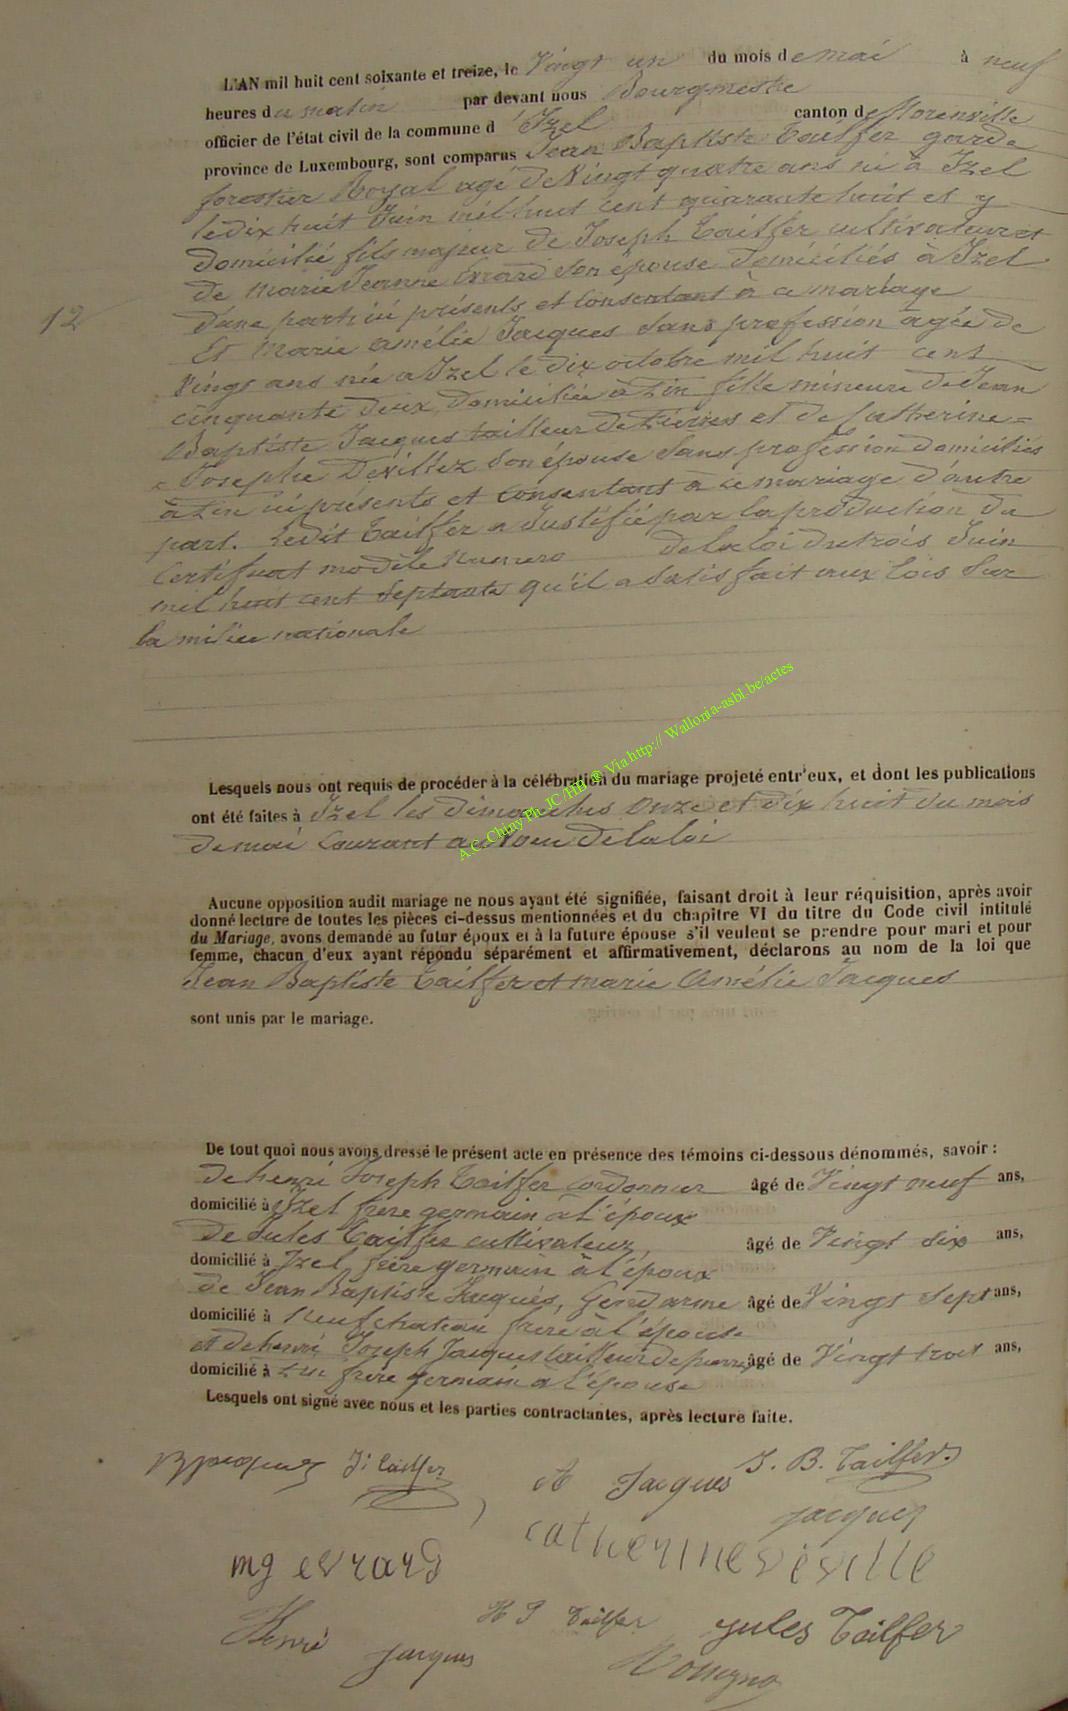 L'AN mil huit cent soixante et treize, le Vingt un du mois de mai à neuf
heures du matin par devant nous Bourgmestre
officier de l'état civil de la commune d'Izel canton de Florenville
province de Luxembourg, sont comparus Jean Baptiste Tailfer garde
forestier Royal agé de Vingt quatre ans né à Izel
le dix huit Juin mil huit cent quarante huit et y
domicilié fils majeur de Joseph Tailfer cultivateur et
de Marie Jeanne Evrard son épouse domiciliés à Izel
d'une part ici présents et consentant à ce mariage
12
Et Marie Amélie Jacques sans profession agée de
Vingt ans née a Izel le dix octobre mil huit cent
cinquante deux domiciliée à Pin fille mineure de Jean
Baptiste Jacques tailleur de Pierres et de Catherine =
= Josephe Devillez son épouse sans profession domiciliés
à Pin ici présents et consentant à ce mariage d'autre
part. Ledit Tailfer a Justifié par la production du
Certificat modèle Numero de la loi du trois Juin
mil huit cent septante qu'il a satisfait aux lois sur
la milice nationale
A.C. Chiny Ph JC /HB ® Via http:// Wallonia-asbl.be/actes
Lesquels nous ont requis de procéder à la célébration du mariage projeté entr'eux, et dont les publications
ont été faites à Izel les dimanches Onze et dix huit du mois
de mai Courant au Voeu de la loi
Aucune opposition audit mariage ne nous ayant été signifiée, faisant droit à leur réquisition, après avoir
donné lecture de toutes les pièces ci-dessus mentionnées et du chapitre VI du titre du Code civil intitulé
du Mariage, avons demandé au futur époux et à la future épouse s'il veulent se prendre pour mari et pour
femme, chacun d'eux ayant répondu séparément et affirmativement, déclarons au nom de la loi que
Jean Baptiste Tailfer et marie Amélie Jacques
sont unis par le mariage.
De tout quoi nous avons dressé le présent acte en présence des témoins ci-dessous dénommés, savoir :
de henri Joseph Tailfer cordonnier âgé de Vingt neuf ans,
domicilié à Izel frère germain à l'époux
de Jules Tailfer cultivateur, âgé de Vingt six ans,
domicilié à Izel frère germain à l'époux
de Jean Baptiste Jacques, Gendarme âgé de Vingt sept ans,
domicilié à Neufchateau frère à l'épouse
et de henri Joseph Jacques tailleur de pierres âgé de Vingt trois ans,
domicilié à Pin frère germain à l'épouse
Lesquels ont signé avec nous et les parties contractantes, après lecture faite.
Bjacques J. Tailfer A Jacques J. B. Tailfer.
jacques
mg evrard catherine deville
H J Tailfer Jules Tailfer
Henri jacques